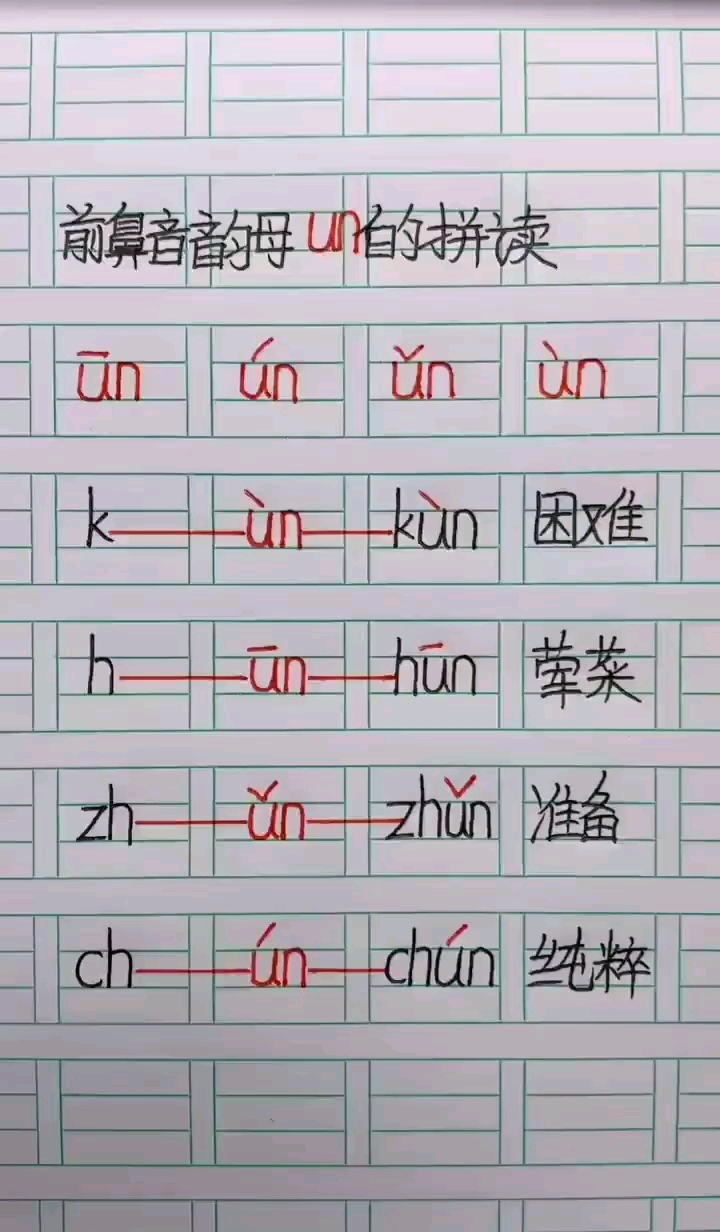 前鼻音韵母un的拼读
ūn ún ǔn ùn
k——ùn——kùn 困难
h——ūn——hūn 荤菜
zh——ǔn——zhǔn 准备
ch——ún——chún 纯粹